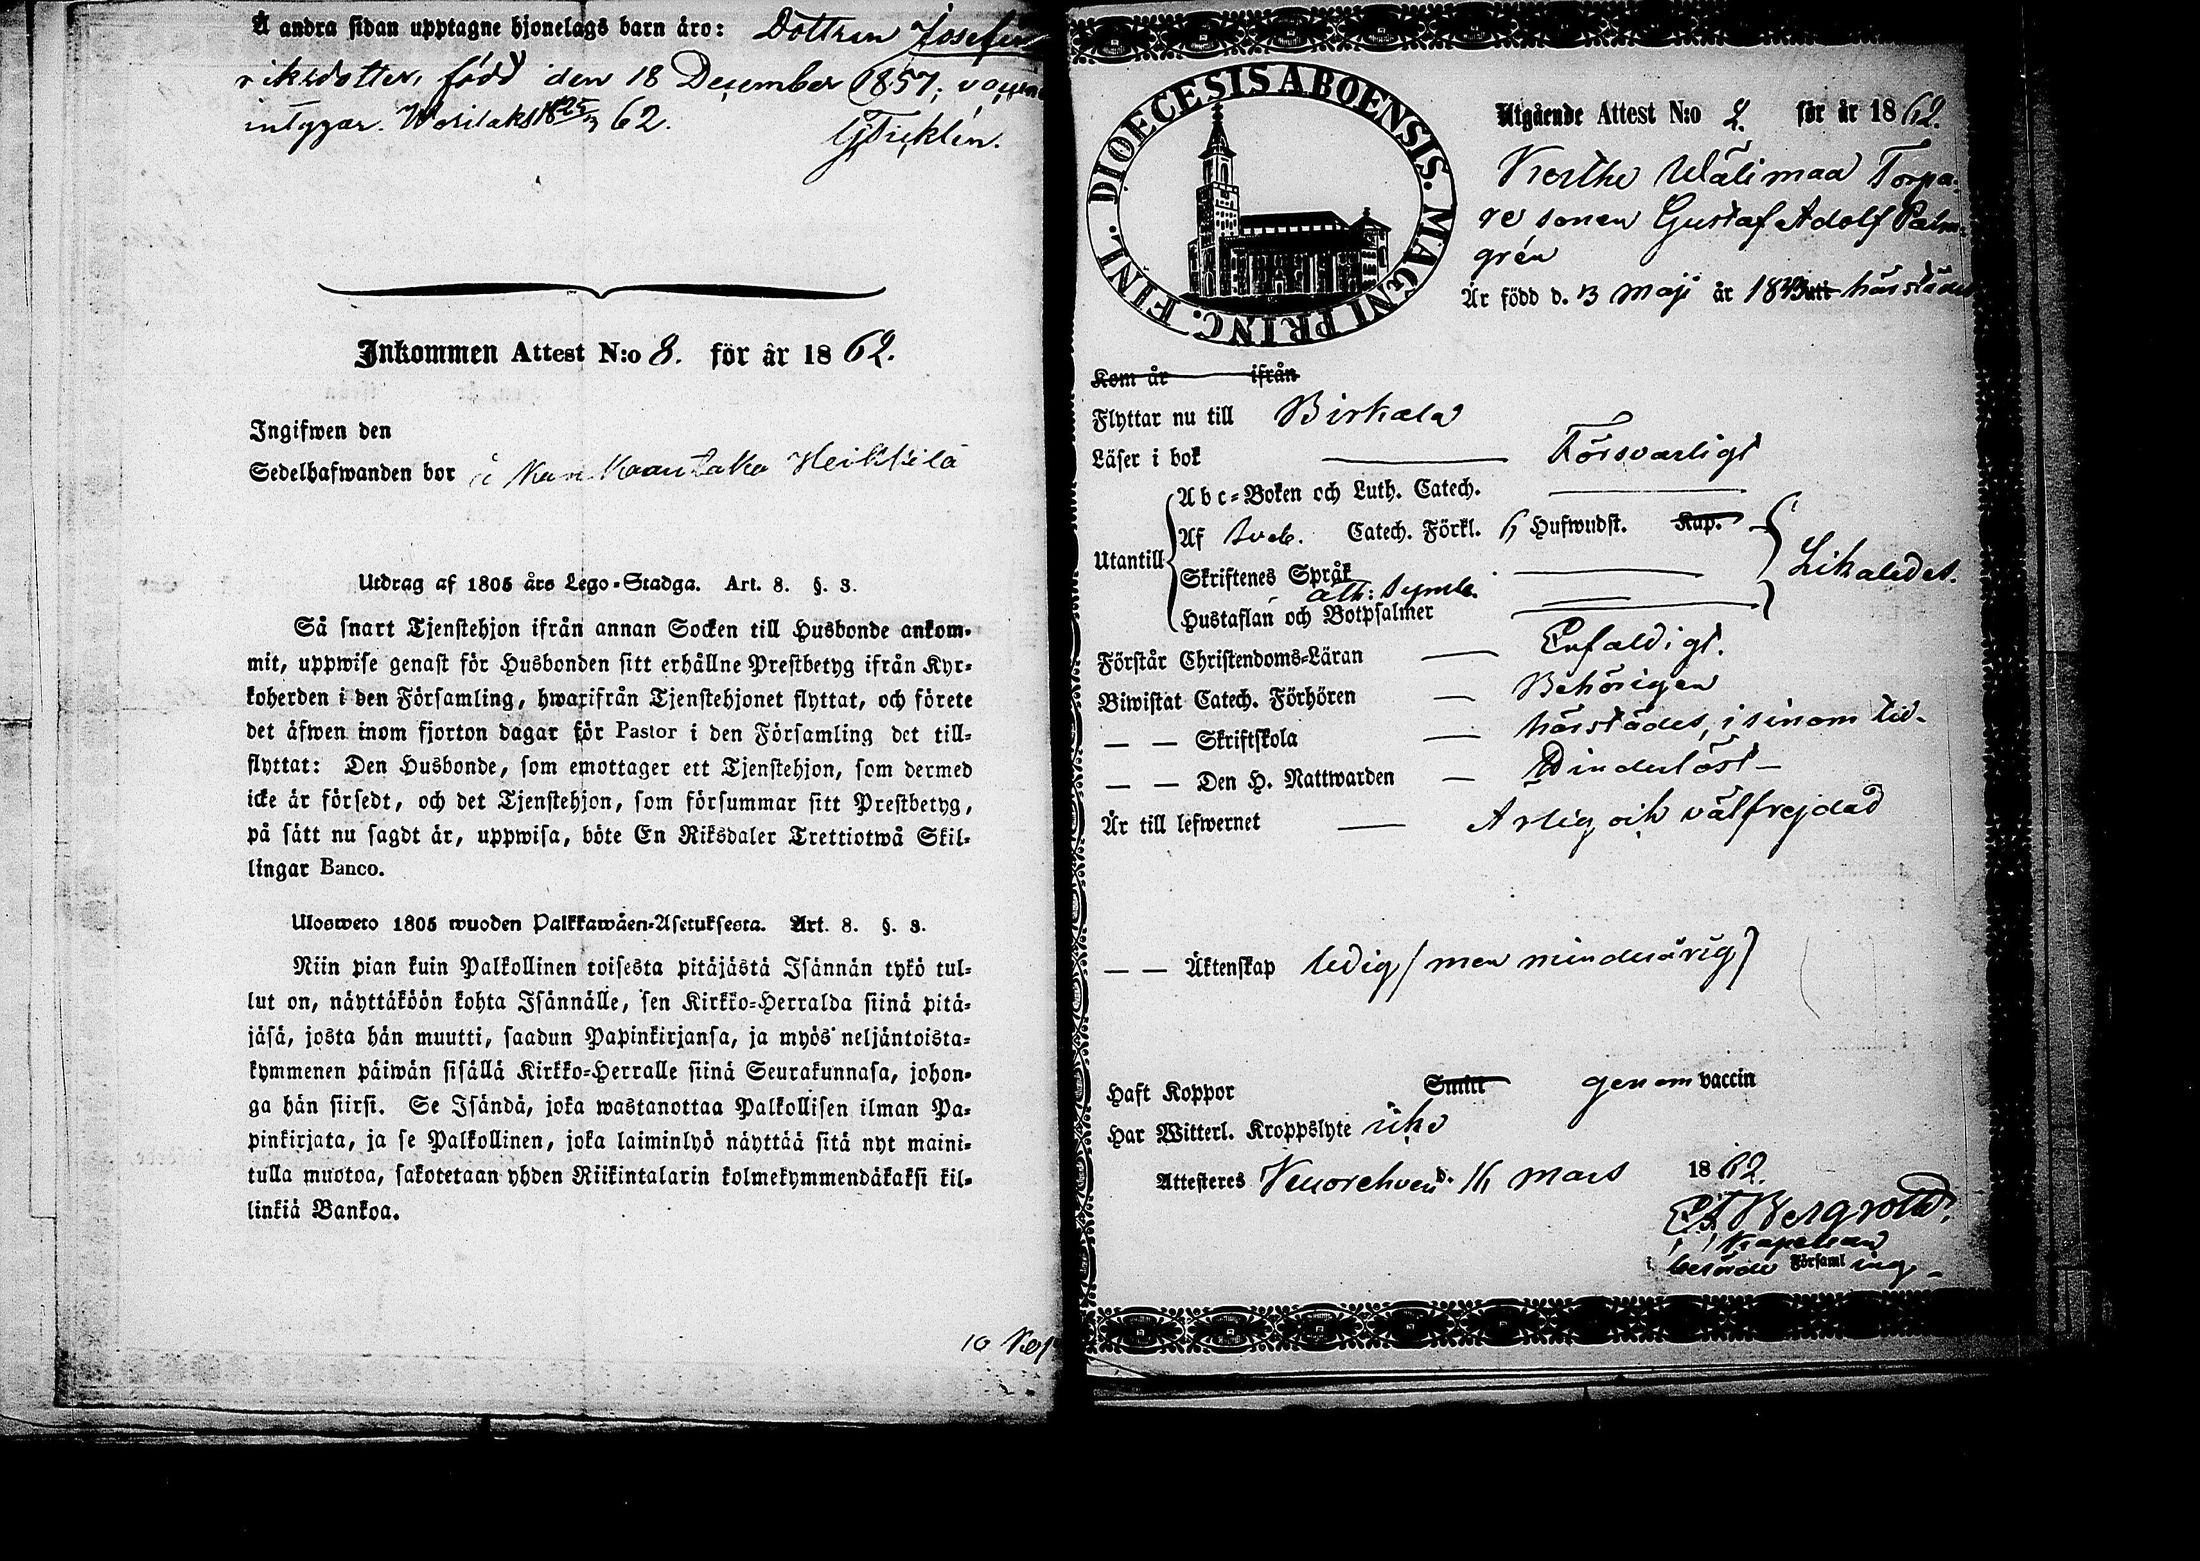 Å andra sidan upptagne hjonelags barn äro: Dottren Josefin
riksdotter, född den 18 December 1857, vaccine
intygar. 18 25/3 62.
Inkommen Attest N:o 8. för år 1862.
Ingifwen den
Sedelhafwanden bor i Heikkilä
Utdrag af 1805 års Lego-Stadga. Art. 8. §. 3.
Så snart Tjenstehjon ifrån annan Socken till Husbonde ankom-
mit, uppwise genast för Husbonden sitt erhållne Prestbetyg ifrån Kyr-
koherden i den Församling, hwarifrån Tjenstehjonet flyttat, och förete
det äfwen inom fjorton dagar för Pastor i den Församling det till-
flyttat: Den Husbonde, som emottager ett Tjenstehjon, som dermed
icke är försedt, och det Tjenstehjon, som försummar sitt Prestbetyg,
på sätt nu sagdt är, uppwisa, böte En Riksdaler Trettiotwå Skil-
lingar Banco.
Ulosweto 1805 wuoden Palkkawäen-Asetuksesta. Art. 8. §. 3.
Niin pian kuin Palkollinen toisesta pitäjästä Isännän tykö tul-
lut on, näyttäköön kohta Isännälle, sen Kirkko-Herralda siinä pitä-
jäsä, josta hän muutti, saadun Papinkirjansa, ja myös neljäntoista-
kymmenen päiwän sisällä Kirkko-Herralle siinä Seurakunnasa, johon-
ga hän siirsi. Se Isändä, joka wastanottaa Palkollisen ilman Pa-
pinkirjata, ja se Palkollinen, joka laiminlyö näyttää sitä nyt maini-
tulla muotoa, sakotetaan yhden Riikintalarin kolmekymmendäkaksi kil-
linkiä Bankoa.
10 Kop
DIOECESIS ABOENSIS. MAGNI PRINC. FINL.
Utgående Attest N:o 2. för år 1862.
Wälimaa Torpa-
re sonen Gustaf Adolf Palm-
grén
Är född d. 13 Maji år 18 härstädes
Kom år ifrån
Flyttar nu till Birkala
Läser i bok Försvarligt
Abc-Boken och Luth. Catech.
Utantill Af Sveb. Catech. Förkl. 6 Hufwudst. Kap. Likaledes.
Skriftenes Språk
Ath: Symb.
Hustaflan och Botpsalmer
Förstår Christendoms-Läran Enfaldigt.
Biwistat Catech. Förhören Behörigen
— — Skriftskola härstädes, i sinom tid.
— — Den H. Nattwarden Oinderlöst
Är till lefwernet Ärlig och välfrejdad
— — Äktenskap ledig (men minderårig)
Haft Koppor Smitt genom vaccin
Har Witterl. Kroppslyte icke
Attesteres Kuorehvesi d. 16 Mars 1862.
Bergroth.
Kapellan
i berörde Församling